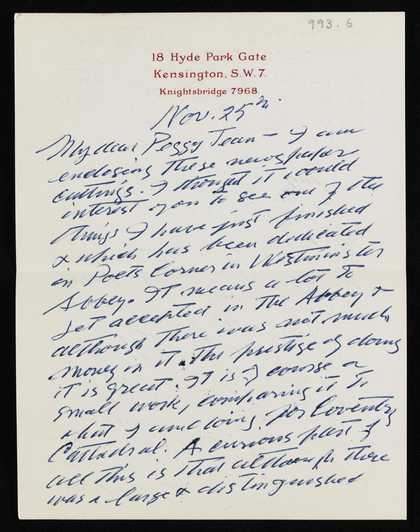 993.6
18 Hyde Park Gate
Kensington, S.W.7.
Knightsbridge 7968
Nov. 25th
My dear Peggy Jean – I am
enclosing these newspaper
cuttings. I thought it would
interest you to see one of the
things I have just finished
& which has been dedicated
in Poets Corner in Westminster
Abbey. It means a lot to
get accepted in the Abbey &
although there was not much
money in it the prestige of doing
it is great. It is of course a
small work, comparing it to
what I am doing for Coventry
Cathedral. A curious part of
all this is that although there
was a large & distinguished